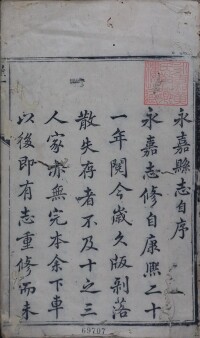 永嘉縣志自序
永嘉志修自康熙二十
一年閱今歲久版剥落
散失存者不及十之三
人家亦無完本余下車
以後即有志重修而未
69707